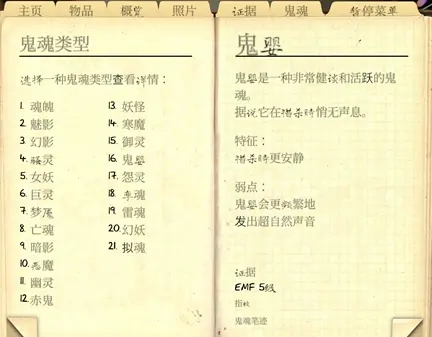 主页 物品 概览 照片 证据 鬼魂 暂停菜单
鬼魂类型
选择一种鬼魂类型查看详情：
1. 魂魄
2. 魅影
3. 幻影
4. 骚灵
5. 女妖
6. 巨灵
7. 梦魇
8. 亡魂
9. 暗影
10. 恶魔
11. 幽灵
12. 赤鬼
13. 妖怪
14. 寒魔
15. 御灵
16. 鬼婴
17. 怨灵
18. 孪魂
19. 雷魂
20. 幻妖
21. 拟魂
鬼婴
鬼婴是一种非常健谈和活跃的鬼
魂。
据说它在猎杀时悄无声息。
特征：
猎杀时更安静
弱点：
鬼婴会更频繁地
发出超自然声音
证据
EMF 5级
指纹
鬼魂笔迹